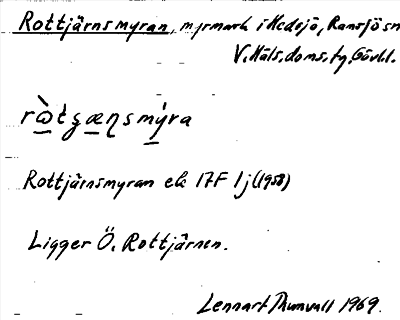 Rottjärnsmyran, myrmark i Hedsjö, Ramsjö sn
V. Häls. doms, ty, Gävll.
rὼtʂæɳsmýra
Rottjärnsmyran ek 17F 1j (1958)
Ligger Ö. Rottjärnen.
Lennart Thunvall 1969.